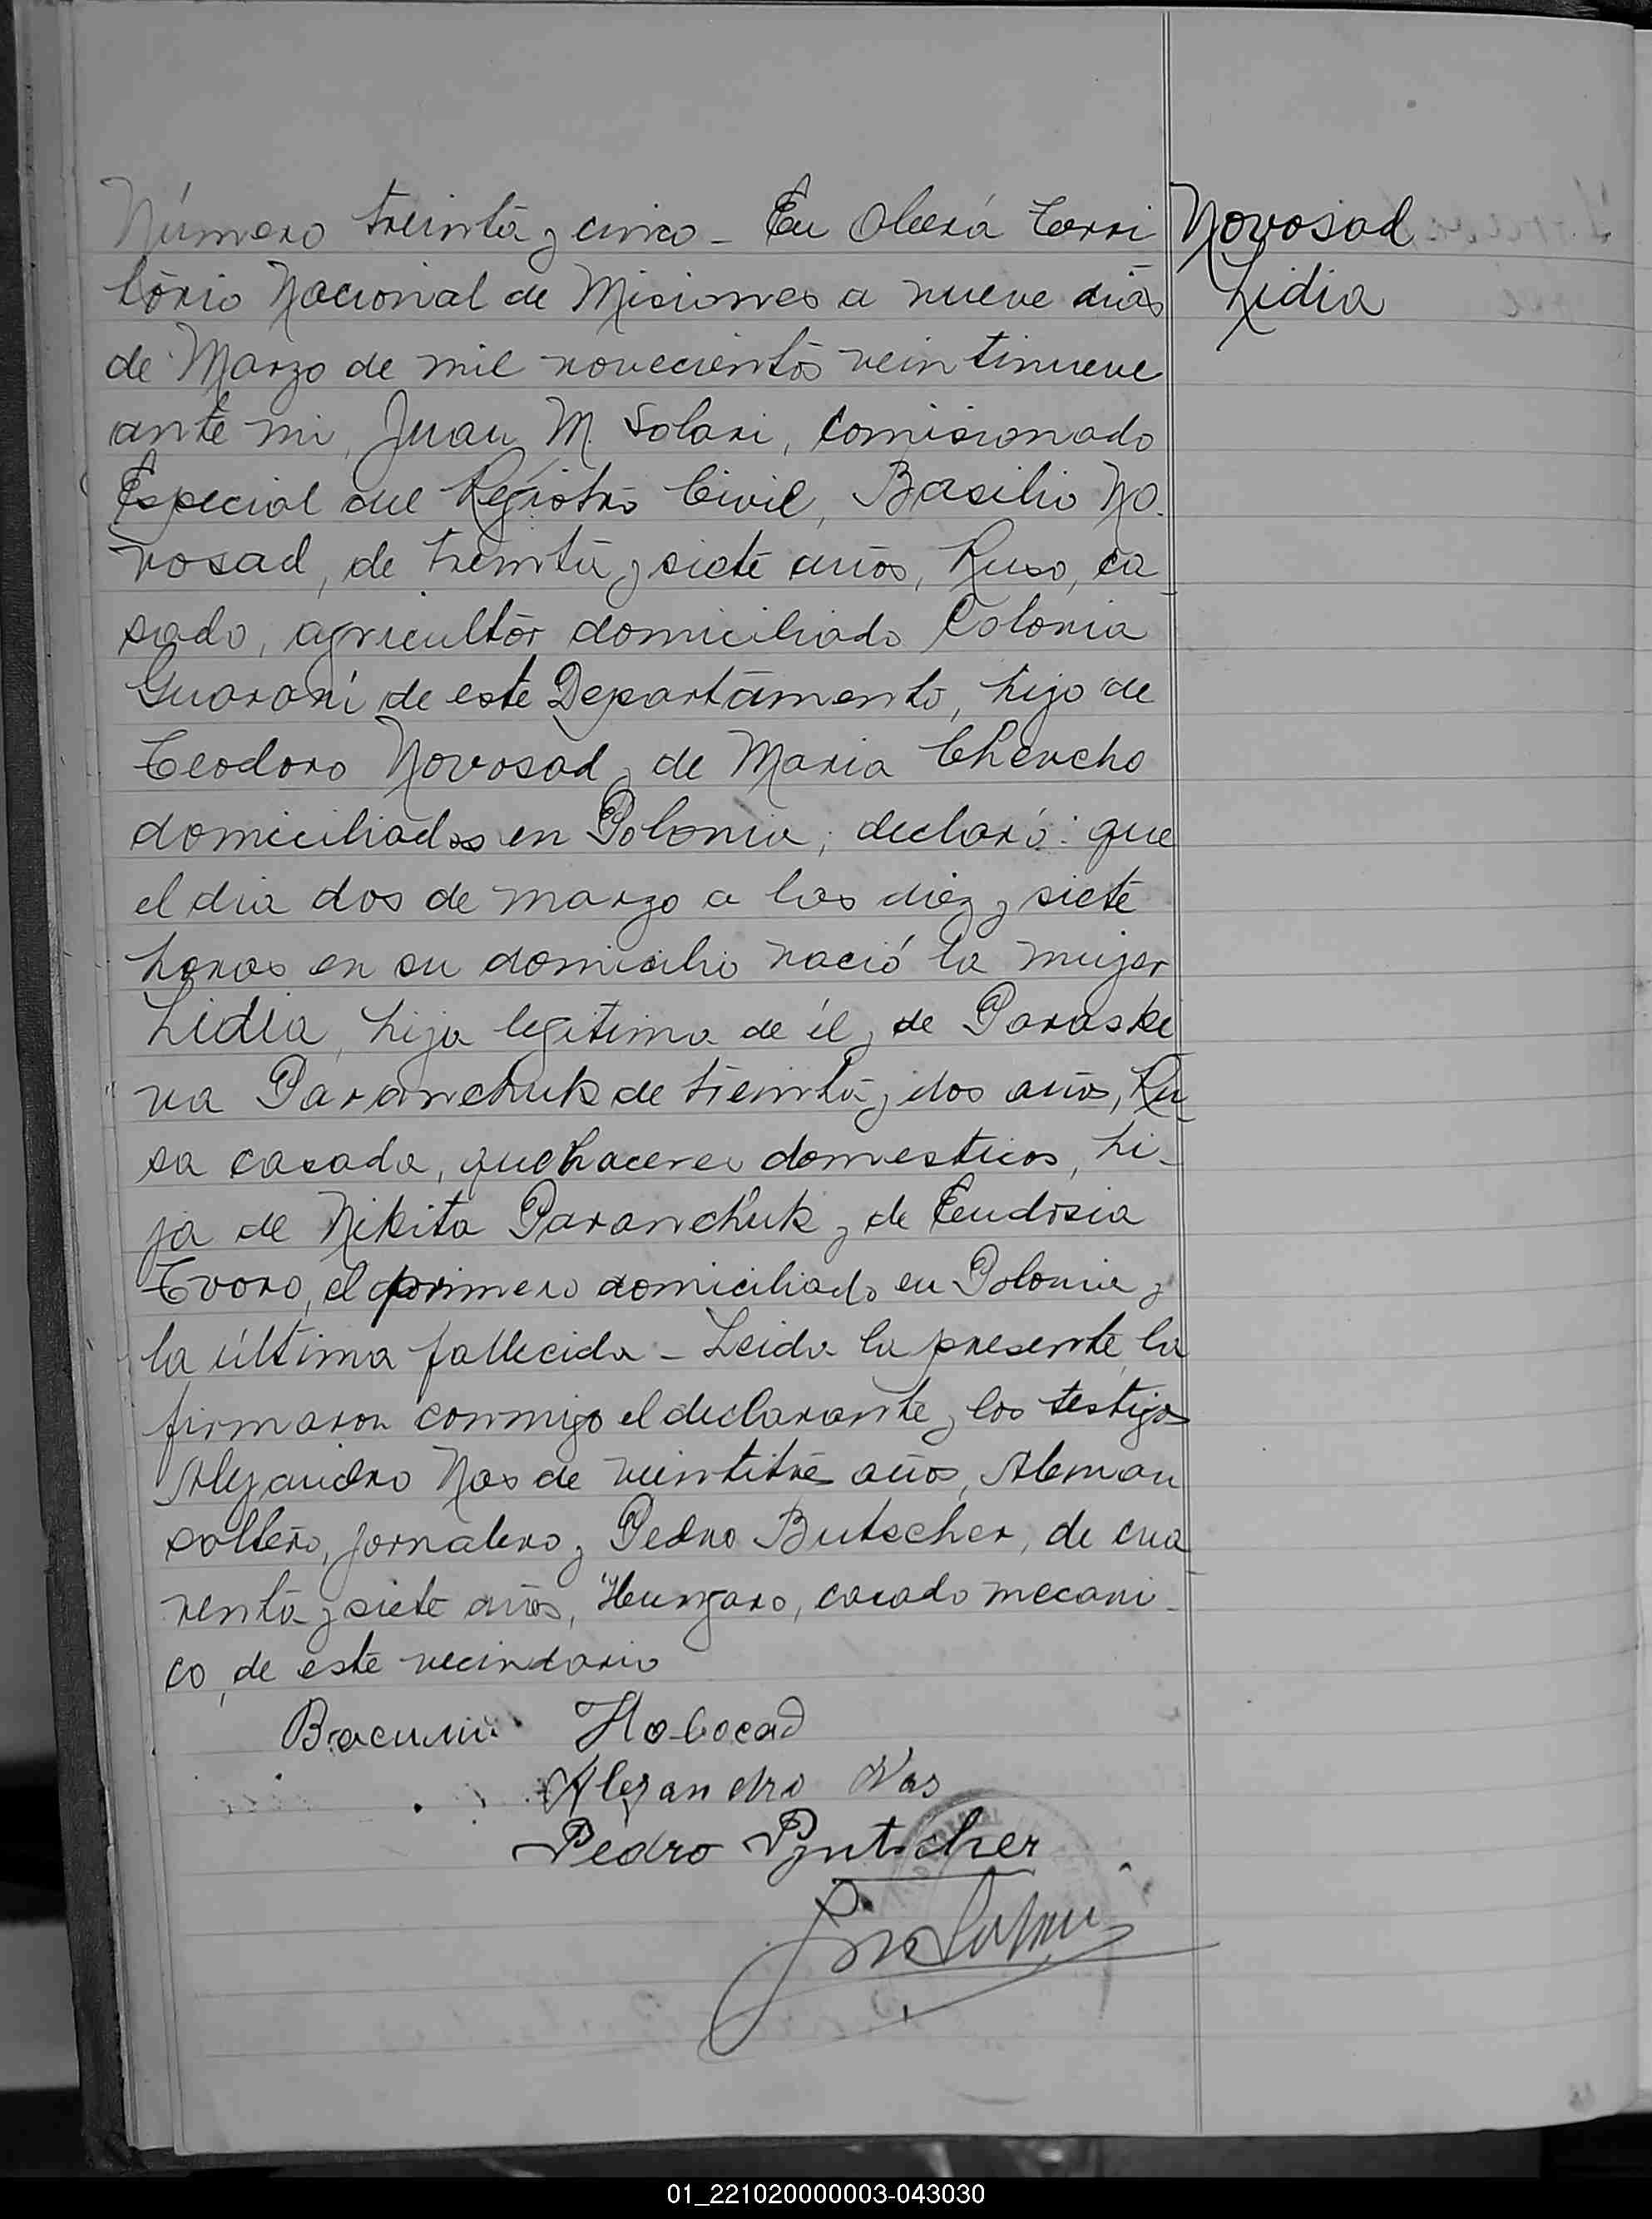 Número treinta y cinco - En Oberá Terri
Novosad
torio Nacional de Misiones a nueve dias
Lidia
de Marzo de mil novecientos veintinueve
ante mi, Juan M. Solari, Comisionado
Especial del Registro Civil, Basilio No-
vosad, de treinta y siete años, Ruso, ca-
sado, agricultor domiciliado Colonia
Guaraní de este Departamento, hijo de
Teodoro Novosad y de Maria Chencho
domiciliados en Polonia; declaró: que
el dia dos de marzo a las diez y siete
horas en su domicilio nació la mujer
Lidia, hija legitima de él y de Paraske
va Paranchuk de treinta y dos años, Ru-
sa casada, quehaceres domesticos, hi-
ja de Nikita Paranchuk y de Eudosia
Tvoro, el primero domiciliado en Polonia y
la última fallecida - Leida la presente la
firmaron conmigo el declarante y los testigos
Alejandro Nas de veintitrés años, Aleman
soltero, jornalero y Pedro Butscher, de cua-
renta y siete años, Hungaro, casado mecani-
co, de este vecindario
Василий Новосад
Alejandro Nas
Pedro Butscher
01_221020000003-043030